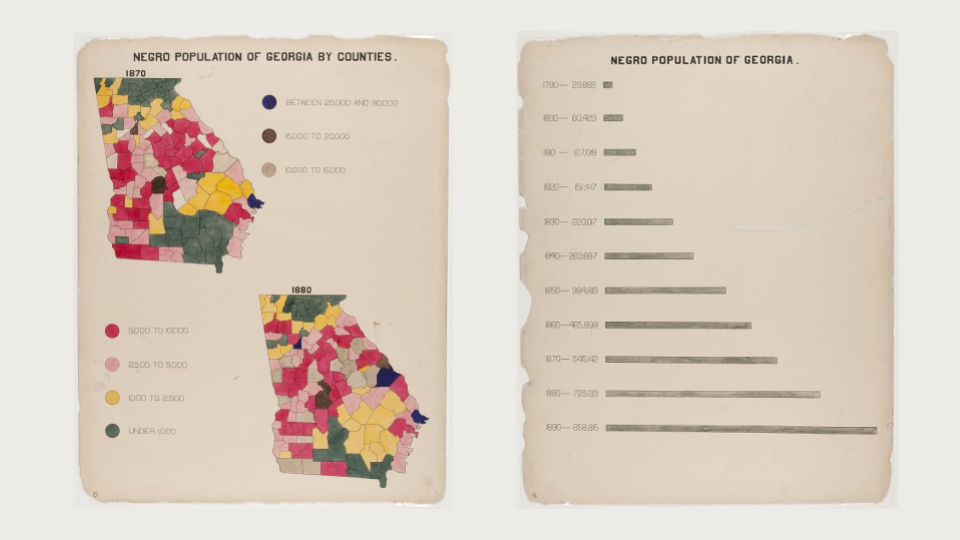 NEGRO POPULATION OF GEORGIA BY COUNTIES.
1870
BETWEEN 20,000 AND 30,000
15,000 TO 20,000
10,000 TO 15,000
1880
5,000 TO 10,000
2,500 TO 5,000
1000 TO 2,500
UNDER 1,000
6
NEGRO POPULATION OF GEORGIA.
1790— 29,662
1800— 60,423
1810— 107,019
1820— 151,417
1830— 220,017
1840— 283,697
1850— 384,613
1860— 465,698
1870— 545,142
1880— 725,133
1890— 858,815
4